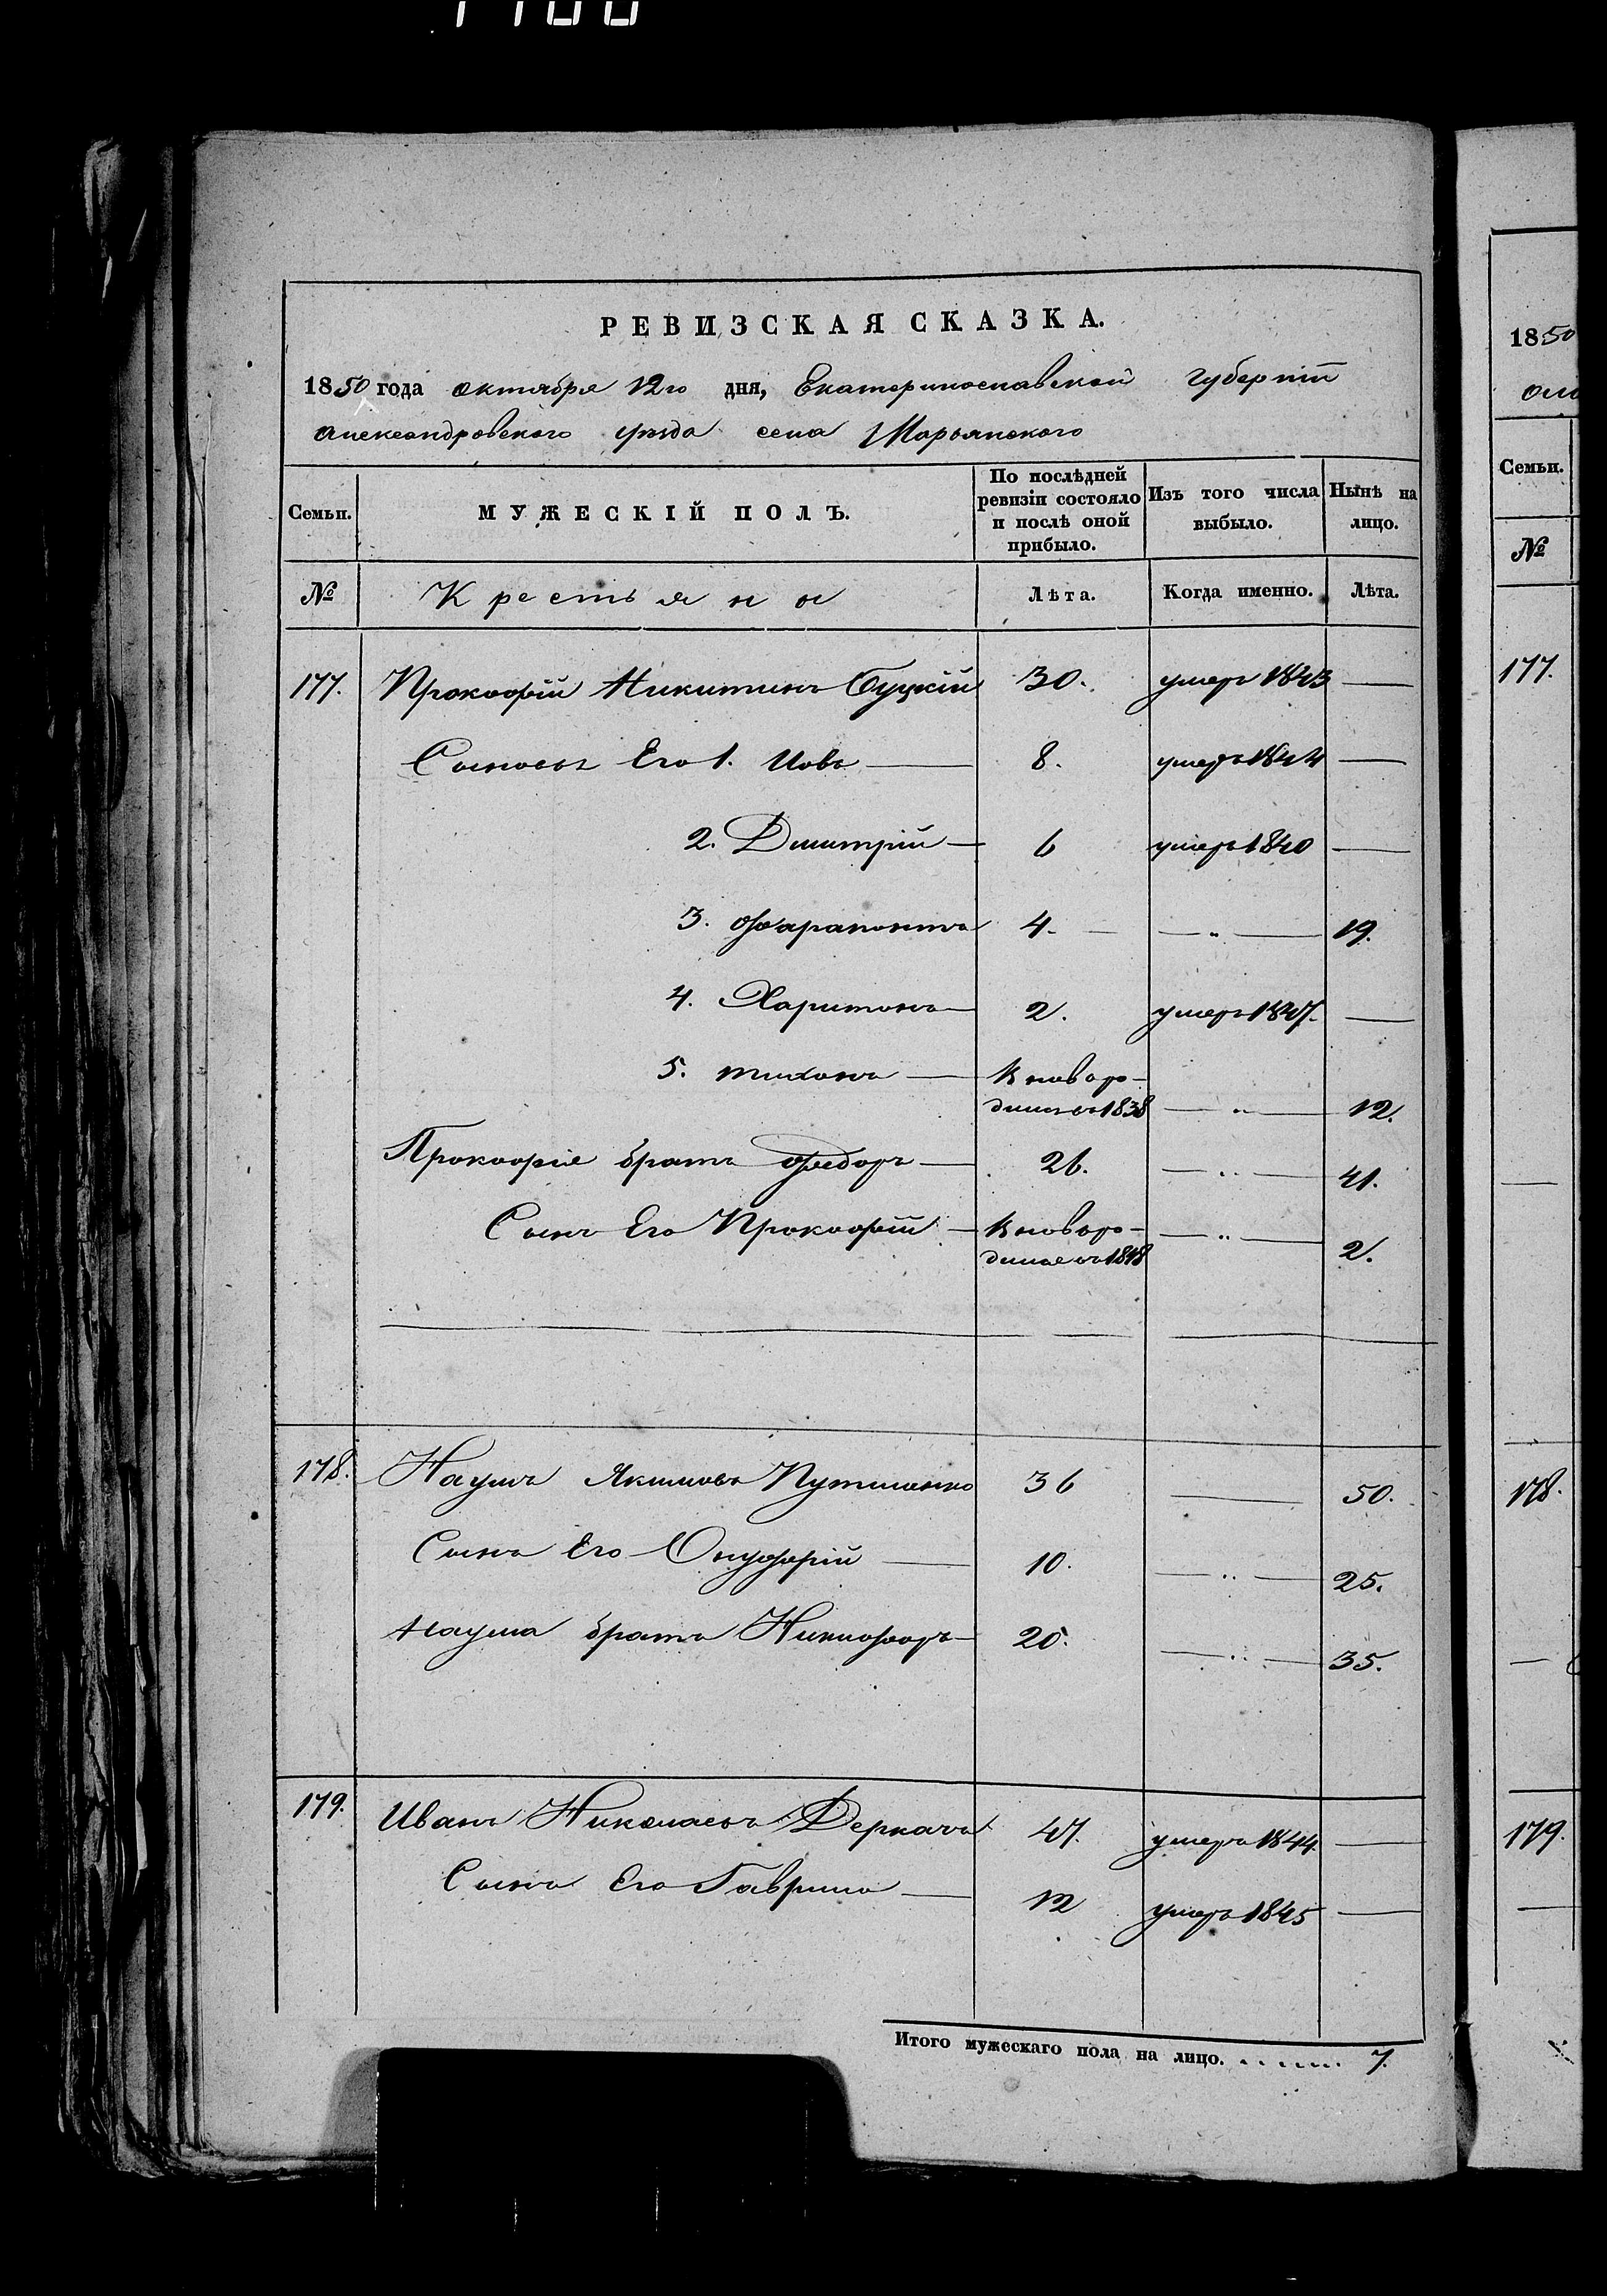 РЕВИЗСКАЯ СКАЗКА.
1850 года октября 12го дня, Екатеринославской губерніи
Александровского уѣзда села Марьянского
Семьи. МУЖЕСКІЙ ПОЛЪ. По послѣдней ревизіи состояло и послѣ оной прибыло. Изъ того числа выбыло. Нынѣ на лицо.
№ Крестьяни Лѣта. Когда именно. Лѣта.
177. Прокофій Никитинъ Буцкій 30. умеръ 1843 —
Сыновья Его 1. Иовъ — 8. умеръ 1844 —
2. Дмитрій — 6 умеръ 1840 —
3. Фарапонтъ 4. — " — 19.
4. Харитонъ — 2. умеръ 1847. —
5. тихонъ — вновьро-
дился 1838 — " — 12.
Прокофія братъ Федоръ — 26. — " — 41.
Сынъ Его Прокофій — вновьро-
дился 1848 — " — 2.
178. Наумъ Якимовъ 36 — 50.
Сынъ Его Онуфрій — 10. — " — 25.
Наума братъ Никифоръ — 20. — " — 35.
179. Иванъ Николаевъ Деркачъ 47. умеръ 1844. —
Сынъ Его Гаврило — 12 умеръ 1845 —
Итого мужескаго пола на лицо. . . . . . . 7.
1850
Семьи.
№
177.
178.
179.